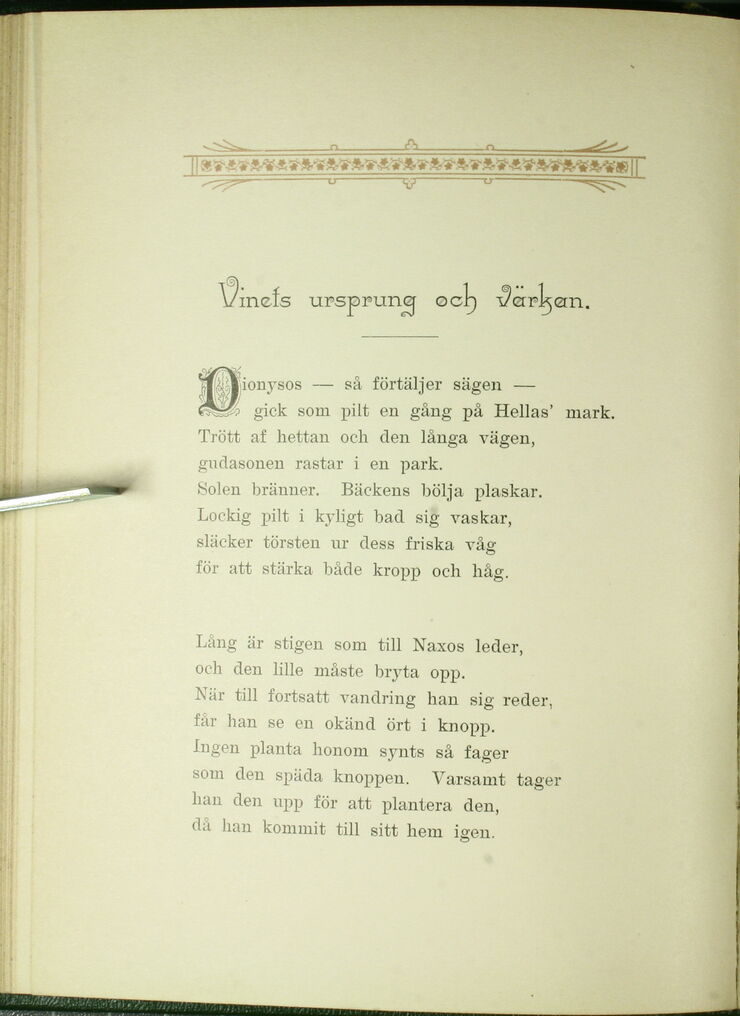 Vinets ursprung och värkan.
Dionysos — så förtäljer sägen —
gick som pilt en gång på Hellas' mark.
Trött af hettan och den långa vägen,
gudasonen rastar i en park.
Solen bränner. Bäckens bölja plaskar.
Lockig pilt i kyligt bad sig vaskar,
släcker törsten ur dess friska våg
för att stärka både kropp och håg.
Lång är stigen som till Naxos leder,
och den lille måste bryta opp.
När till fortsatt vandring han sig reder,
får han se en okänd ört i knopp.
Ingen planta honom synts så fager
som den späda knoppen. Varsamt tager
han den upp för att plantera den,
då han kommit till sitt hem igen.